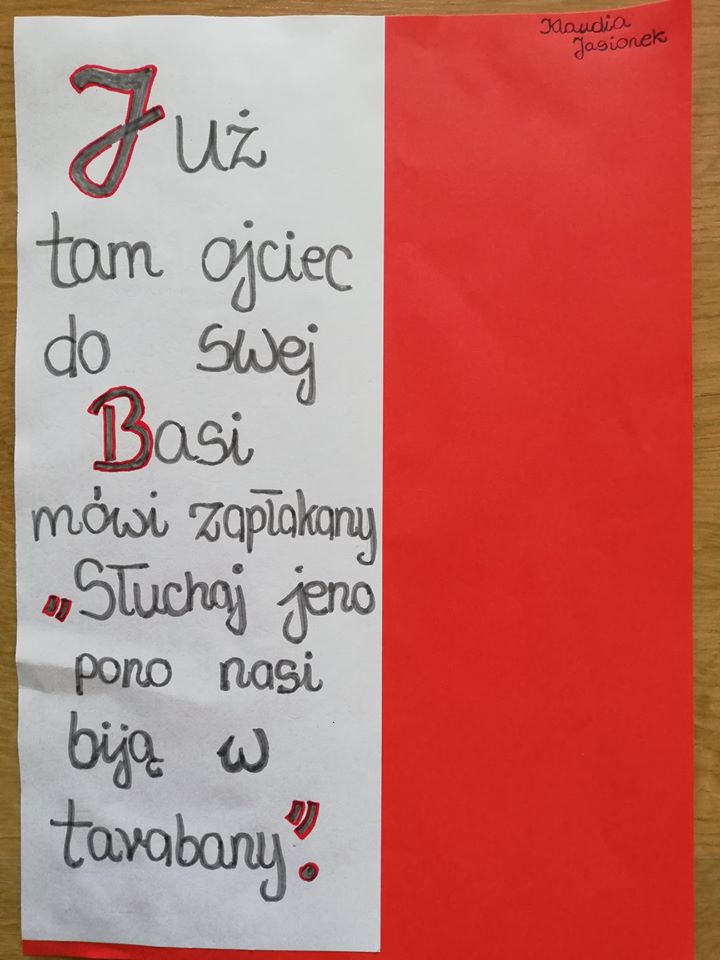 Klaudia
Jasionek
Już
tam ojciec
do swej
Basi
mówi zapłakany
„Słuchaj jeno
pono nasi
biją w
tarabany”.